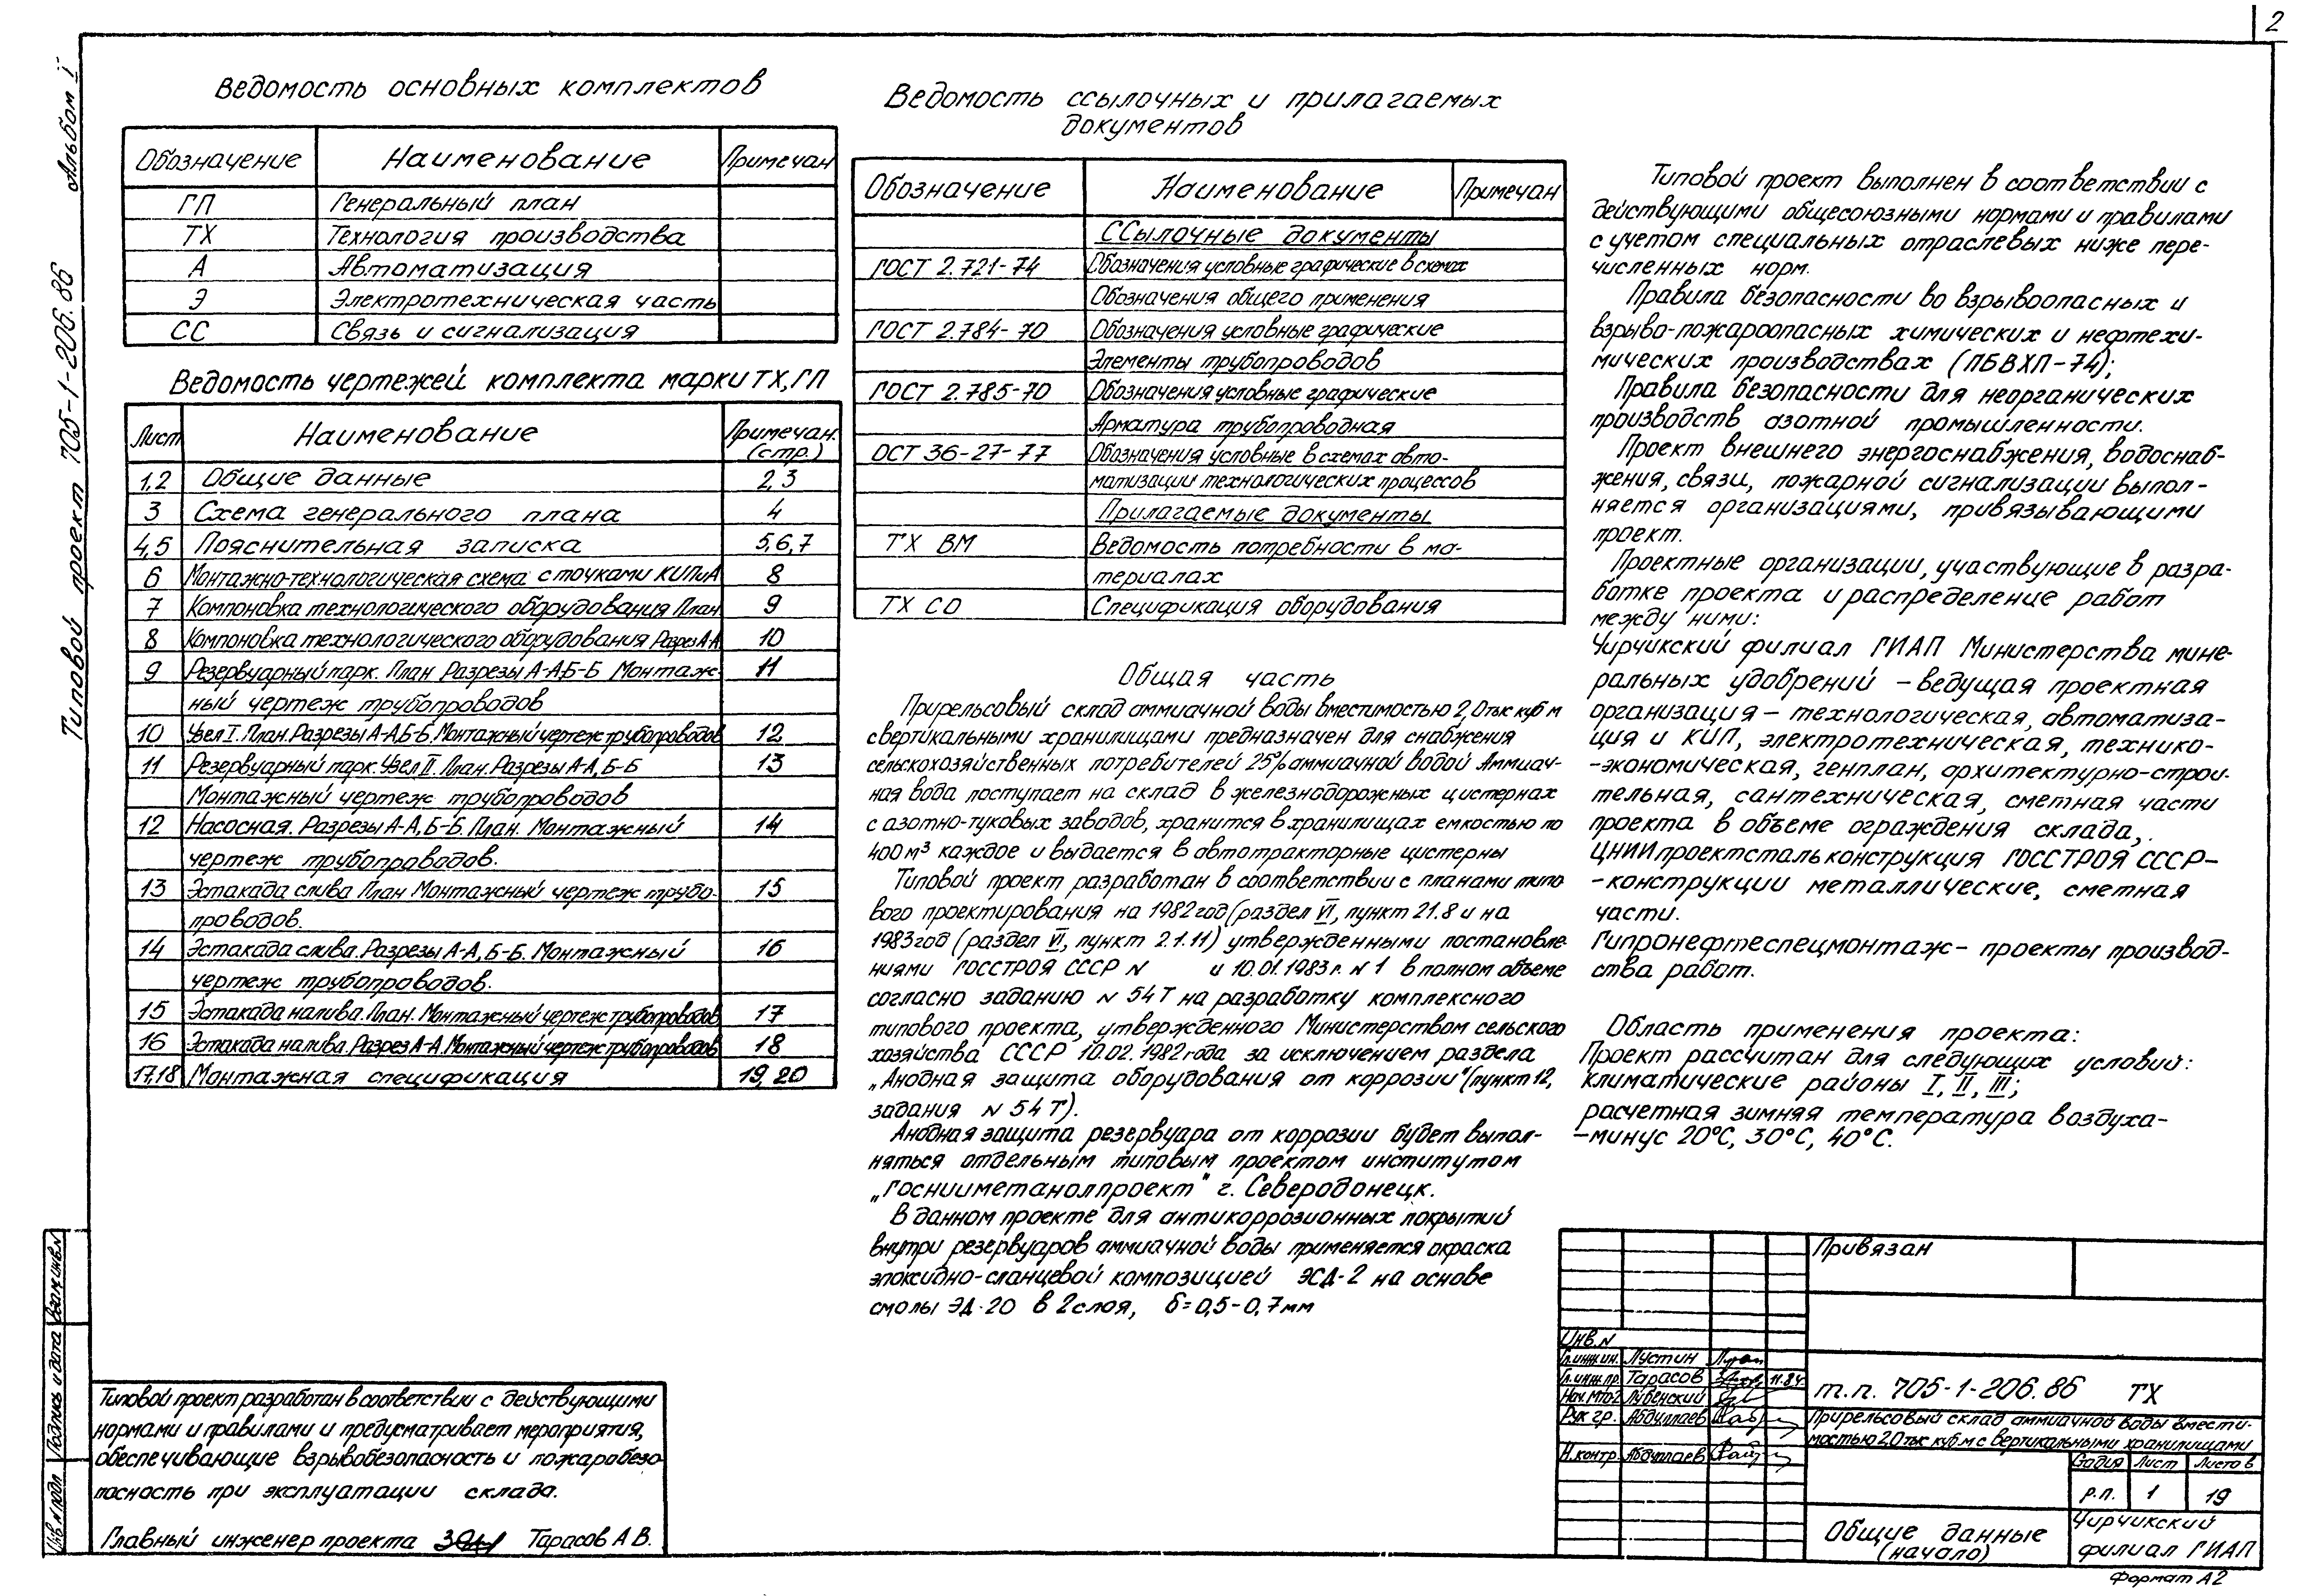 2
Типовой проект 705-1-206.86 Альбом I
Ведомость основных комплектов
Обозначение Наименование Примечан
ГП Генеральный план
ТХ Технология производства
А Автоматизация
Э Электротехническая часть
СС Связь и сигнализация
Ведомость чертежей комплекта марки ТХ, ГП
Лист Наименование Примечан. (стр.)
1,2 Общие данные 2,3
3 Схема генерального плана 4
4,5 Пояснительная записка 5,6,7
6 Монтажно-технологическая схема с точками КИПиА 8
7 Компоновка технологического оборудования План 9
8 Компоновка технологического оборудования Разрез А-А 10
9 Резервуарный парк. План Разрезы А-А,Б-Б Монтаж- 11
ный чертеж трубопроводов
10 Узел I. План. Разрезы А-А,Б-Б. Монтажный чертеж трубопроводов 12
11 Резервуарный парк. Узел II. План. Разрезы А-А, Б-Б 13
Монтажный чертеж трубопроводов
12 Насосная. Разрезы А-А, Б-Б. План. Монтажный 14
чертеж трубопроводов.
13 Эстакада слива План Монтажный чертеж трубо- 15
проводов.
14 Эстакада слива. Разрезы А-А, Б-Б. Монтажный 16
чертеж трубопроводов.
15 Эстакада налива. План. Монтажный чертеж трубопроводов 17
16 Эстакада налива. Разрез А-А. Монтажный чертеж трубопроводов 18
17,18 Монтажная спецификация 19, 20
Ведомость ссылочных и прилагаемых
документов
Обозначение Наименование Примечан
Ссылочные документы
ГОСТ 2.721-74 Обозначения условные графические в схемах
Обозначения общего применения
ГОСТ 2.784-70 Обозначения условные графические
Элементы трубопроводов
ГОСТ 2.785-70 Обозначения условные графические
Арматура трубопроводная
ОСТ 36-27-77 Обозначения условные в схемах авто-
матизации технологических процессов
Прилагаемые документы
ТХ ВМ Ведомость потребности в ма-
териалах
ТХ СО Спецификация оборудования
Общая часть
Прирельсовый склад аммиачной воды вместимостью 2,0 тыс куб м
с вертикальными хранилищами предназначен для снабжения
сельскохозяйственных потребителей 25% аммиачной водой Аммиач-
ная вода поступает на склад в железнодорожных цистернах
с азотно-туковых заводов, хранится в хранилищах емкостью по
400 м³ каждое и выдается в автотракторные цистерны
Типовой проект разработан в соответствии с планами типо
вого проектирования на 1982 год (раздел VI, пункт 21.8 и на
1983 год (раздел VI, пункт 2.1.11) утвержденными постановле-
ниями ГОССТРОЯ СССР N и 10.01.1983 г. N 1 в полном объеме
согласно заданию N 54 Т на разработку комплексного
типового проекта, утвержденного Министерством сельского
хозяйства СССР 10.02.1982 года за исключением раздела
„Анодная защита оборудования от коррозии" (пункт 12,
задания N 54 Т).
Анодная защита резервуара от коррозии будет выпол-
няться отдельным типовым проектом институтом
„Госнииметанолпроект" г. Северодонецк.
В данном проекте для антикоррозионных покрытий
внутри резервуаров аммиачной воды применяется окраска
эпоксидно-сланцевой композицией ЭСД-2 на основе
смолы ЭД-20 в 2 слоя, δ=0,5-0,7 мм
Типовой проект выполнен в соответствии с
действующими общесоюзными нормами и правилами
с учетом специальных отраслевых ниже пере-
численных норм.
Правила безопасности во взрывоопасных и
взрыво-пожароопасных химических и нефтехи-
мических производствах (ПБВХП-74);
Правила безопасности для неорганических
производств азотной промышленности.
Проект внешнего энергоснабжения, водоснаб-
жения, связи, пожарной сигнализации выпол-
няется организациями, привязывающими
проект.
Проектные организации, участвующие в разра-
ботке проекта и распределение работ
между ними:
Чирчикский филиал ГИАП Министерства мине-
ральных удобрений - ведущая проектная
организация - технологическая, автоматиза-
ция и КИП, электротехническая, технико-
-экономическая, генплан, архитектурно-строи-
тельная, сантехническая, сметная части
проекта в объеме ограждения склада,.
ЦНИИпроектстальконструкция ГОССТРОЯ СССР-
-конструкции металлические, сметная
части.
Гипронефтеспецмонтаж - проекты производ-
ства работ.
Область применения проекта:
Проект рассчитан для следующих условий:
климатические районы I, II, III;
расчетная зимняя температура воздуха-
-минус 20°С, 30°С, 40°С.
Типовой проект разработан в соответствии с действующими
нормами и правилами и предусматривает мероприятия,
обеспечивающие взрывобезопасность и пожаробезо
пасность при эксплуатации склада.
Главный инженер проекта Тарасов А В.
Инв N подл Подпись и дата Взам инв N
Привязан
Инв. N
Гл. инж ин. Лустин
Гл. инж пр. Тарасов 11.84
Нач. МТО-2 Лубенский
Рук гр. Абдуллаев
Н. контр. Абдуллаев
т.п. 705-1-206.86 ТХ
Прирельсовый склад аммиачной воды вмести-
мостью 2,0 тыс куб. м с вертикальными хранилищами
Стадия Лист Листов
Р.П. 1 19
Общие данные
(начало)
Чирчикский
филиал ГИАП
Формат А2